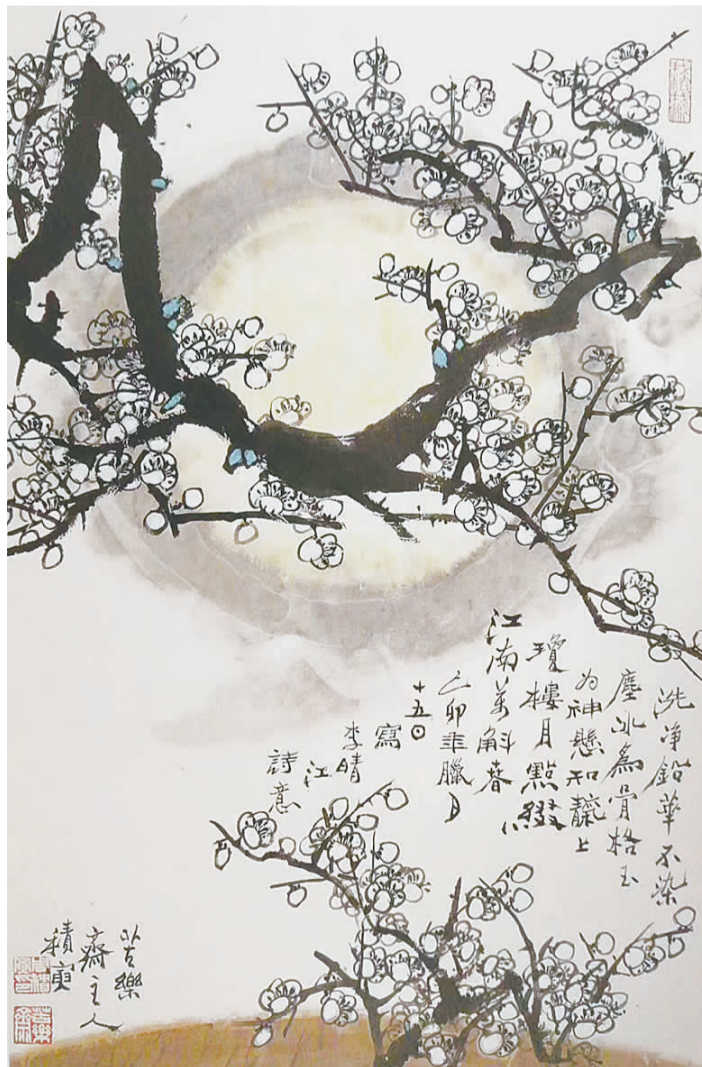 洗净鉛華不染
塵冰為骨格玉
为神懸知靝上
瓊樓月點綴
江南萬斛春
卯年臘月
十五日
寫
李晴
江
詩意
苦樂
齋主人
積寅